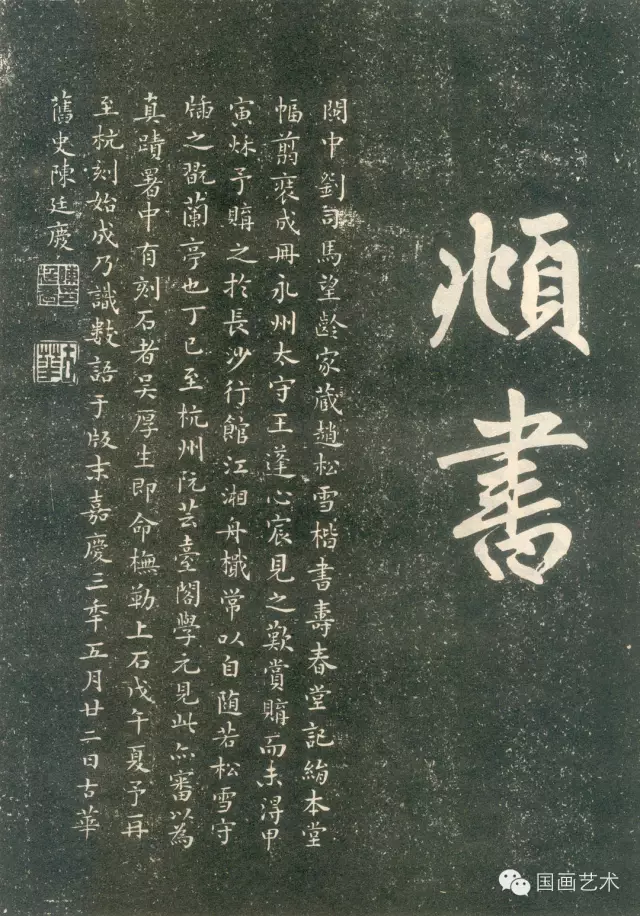 頫書
閩中劉司馬望齡家藏趙松雪楷書壽春堂記絹本堂
幅翦裒成冊永州太守王蓬心宸見之歎賞購而未得甲
寅秌予購之於長沙行館江湘舟檝常以自随若松雪守
牐之翫蘭亭也丁巳至杭州阮芸臺閣學元見此亦審以為
真蹟署中有刻石者吴厚生即命橅勒上石戊午夏予再
至杭刻始成乃識數語于版末嘉慶三秊五月廿二日古華
舊史陳廷慶
古華
国画艺术